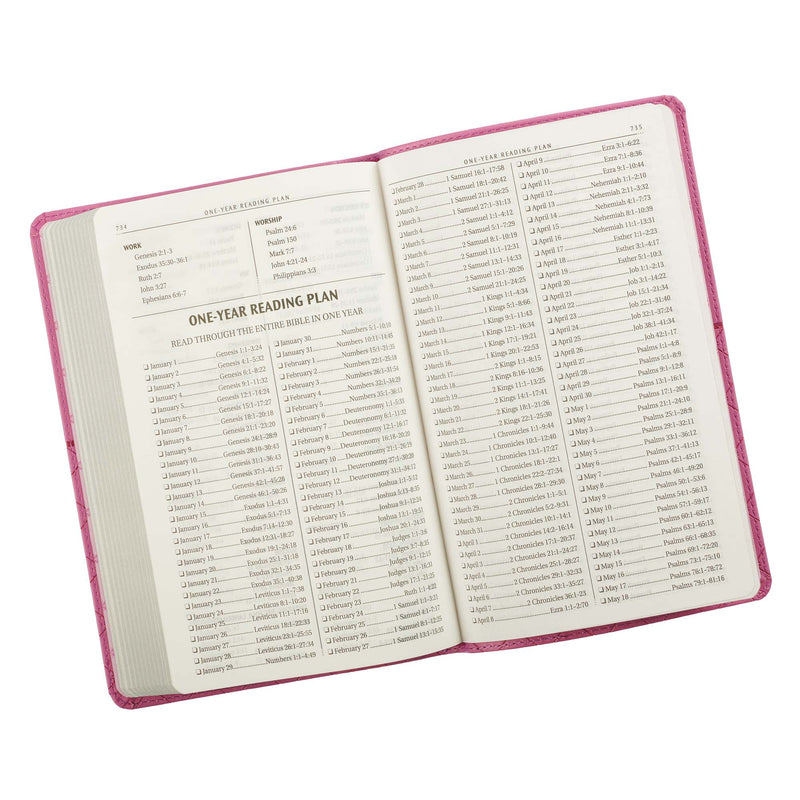 734
ONE-YEAR READING PLAN
WORK
Genesis 2:1-3
Exodus 35:30-36:1
Ruth 2:7
John 3:27
Ephesians 6:6-7
WORSHIP
Psalm 24:6
Psalm 150
Mark 7:7
John 4:21-24
Philippians 3:3
ONE-YEAR READING PLAN
READ THROUGH THE ENTIRE BIBLE IN ONE YEAR
❑ January 1 Genesis 1:1-3:24
❑ January 2 Genesis 4:1-5:32
❑ January 3 Genesis 6:1-8:22
❑ January 4 Genesis 9:1-11:32
❑ January 5 Genesis 12:1-14:24
❑ January 6 Genesis 15:1-17:27
❑ January 7 Genesis 18:1-20:18
❑ January 8 Genesis 21:1-23:20
❑ January 9 Genesis 24:1-28:9
❑ January 10 Genesis 28:10-30:43
❑ January 11 Genesis 31:1-36:43
❑ January 12 Genesis 37:1-41:57
❑ January 13 Genesis 42:1-45:28
❑ January 14 Genesis 46:1-50:26
❑ January 15 Exodus 1:1-4:31
❑ January 16 Exodus 5:1-7:13
❑ January 17 Exodus 7:14-12:30
❑ January 18 Exodus 12:31-18:27
❑ January 19 Exodus 19:1-24:18
❑ January 20 Exodus 25:1-31:18
❑ January 21 Exodus 32:1-34:35
❑ January 22 Exodus 35:1-40:38
❑ January 23 Leviticus 1:1-7:38
❑ January 24 Leviticus 8:1-10:20
❑ January 25 Leviticus 11:1-17:16
❑ January 26 Leviticus 18:1-22:33
❑ January 27 Leviticus 23:1-25:55
❑ January 28 Leviticus 26:1-27:34
❑ January 29 Numbers 1:1-4:49
❑ January 30 Numbers 5:1-10:10
❑ January 31 Numbers 10:11-14:45
❑ February 1 Numbers 15:1-21:35
❑ February 2 Numbers 22:1-25:18
❑ February 3 Numbers 26:1-31:54
❑ February 4 Numbers 32:1-34:29
❑ February 5 Numbers 35:1-36:13
❑ February 6 Deuteronomy 1:1-5:33
❑ February 7 Deuteronomy 6:1-11:32
❑ February 8 Deuteronomy 12:1-16:17
❑ February 9 Deuteronomy 16:18-20:20
❑ February 10 Deuteronomy 21:1-26:19
❑ February 11 Deuteronomy 27:1-30:20
❑ February 12 Deuteronomy 31:1-34:12
❑ February 13 Joshua 1:1-5:12
❑ February 14 Joshua 5:13-8:35
❑ February 15 Joshua 9:1-12:24
❑ February 16 Joshua 13:1-19:51
❑ February 17 Joshua 20:1-24:33
❑ February 18 Judges 1:1-3:6
❑ February 19 Judges 3:7-8:35
❑ February 20 Judges 9:1-12:15
❑ February 21 Judges 13:1-16:31
❑ February 22 Judges 17:1-21:25
❑ February 23 Ruth 1:1-4:22
❑ February 24 1 Samuel 1:1-3:21
❑ February 25 1 Samuel 4:1-7:17
❑ February 26 1 Samuel 8:1-12:25
❑ February 27 1 Samuel 13:1-15:35
ONE-YEAR READING PLAN
735
❑ February 28 1 Samuel 16:1-17:58
❑ March 1 1 Samuel 18:1-20:42
❑ March 2 1 Samuel 21:1-26:25
❑ March 3 1 Samuel 27:1-31:13
❑ March 4 2 Samuel 1:1-4:12
❑ March 5 2 Samuel 5:1-7:29
❑ March 6 2 Samuel 8:1-10:19
❑ March 7 2 Samuel 11:1-12:31
❑ March 8 2 Samuel 13:1-14:33
❑ March 9 2 Samuel 15:1-20:26
❑ March 10 2 Samuel 21:1-24:25
❑ March 11 1 Kings 1:1-4:34
❑ March 12 1 Kings 5:1-8:66
❑ March 13 1 Kings 9:1-11:43
❑ March 14 1 Kings 12:1-16:34
❑ March 15 1 Kings 17:1-19:21
❑ March 16 1 Kings 20:1-22:53
❑ March 17 2 Kings 1:1-8:15
❑ March 18 2 Kings 8:16-10:36
❑ March 19 2 Kings 11:1-13:25
❑ March 20 2 Kings 14:1-17:41
❑ March 21 2 Kings 18:1-21:26
❑ March 22 2 Kings 22:1-25:30
❑ March 23 1 Chronicles 1:1-9:44
❑ March 24 1 Chronicles 10:1-12:40
❑ March 25 1 Chronicles 13:1-17:27
❑ March 26 1 Chronicles 18:1-22:1
❑ March 27 1 Chronicles 22:2-27:34
❑ March 28 1 Chronicles 28:1-29:30
❑ March 29 2 Chronicles 1:1-5:1
❑ March 30 2 Chronicles 5:2-9:31
❑ March 31 2 Chronicles 10:1-14:1
❑ April 1 2 Chronicles 14:2-16:14
❑ April 2 2 Chronicles 17:1-20:37
❑ April 3 2 Chronicles 21:1-24:27
❑ April 4 2 Chronicles 25:1-28:27
❑ April 5 2 Chronicles 29:1-32:33
❑ April 6 2 Chronicles 33:1-35:27
❑ April 7 2 Chronicles 36:1-23
❑ April 8 Ezra 1:1-2:70
❑ April 9 Ezra 3:1-6:22
❑ April 10 Ezra 7:1-8:36
❑ April 11 Ezra 9:1-10:44
❑ April 12 Nehemiah 1:1-2:10
❑ April 13 Nehemiah 2:11-3:32
❑ April 14 Nehemiah 4:1-7:73
❑ April 15 Nehemiah 8:1-10:39
❑ April 16 Nehemiah 11:1-13:31
❑ April 17 Esther 1:1-2:23
❑ April 18 Esther 3:1-4:17
❑ April 19 Esther 5:1-10:3
❑ April 20 Job 1:1-2:13
❑ April 21 Job 3:1-14:22
❑ April 22 Job 15:1-21:34
❑ April 23 Job 22:1-31:40
❑ April 24 Job 32:1-37:24
❑ April 25 Job 38:1-41:34
❑ April 26 Job 42:1-17
❑ April 27 Psalms 1:1-4:8
❑ April 28 Psalms 5:1-8:9
❑ April 29 Psalms 9:1-12:8
❑ April 30 Psalms 13:1-16:11
❑ May 1 Psalms 17:1-20:9
❑ May 2 Psalms 21:1-24:10
❑ May 3 Psalms 25:1-28:9
❑ May 4 Psalms 29:1-32:11
❑ May 5 Psalms 33:1-36:12
❑ May 6 Psalms 37:1-40:17
❑ May 7 Psalms 41:1-45:17
❑ May 8 Psalms 46:1-49:20
❑ May 9 Psalms 50:1-53:6
❑ May 10 Psalms 54:1-56:13
❑ May 11 Psalms 57:1-59:17
❑ May 12 Psalms 60:1-62:12
❑ May 13 Psalms 63:1-65:13
❑ May 14 Psalms 66:1-68:35
❑ May 15 Psalms 69:1-72:20
❑ May 16 Psalms 73:1-77:20
❑ May 17 Psalms 78:1-78:72
❑ May 18 Psalms 79:1-81:16